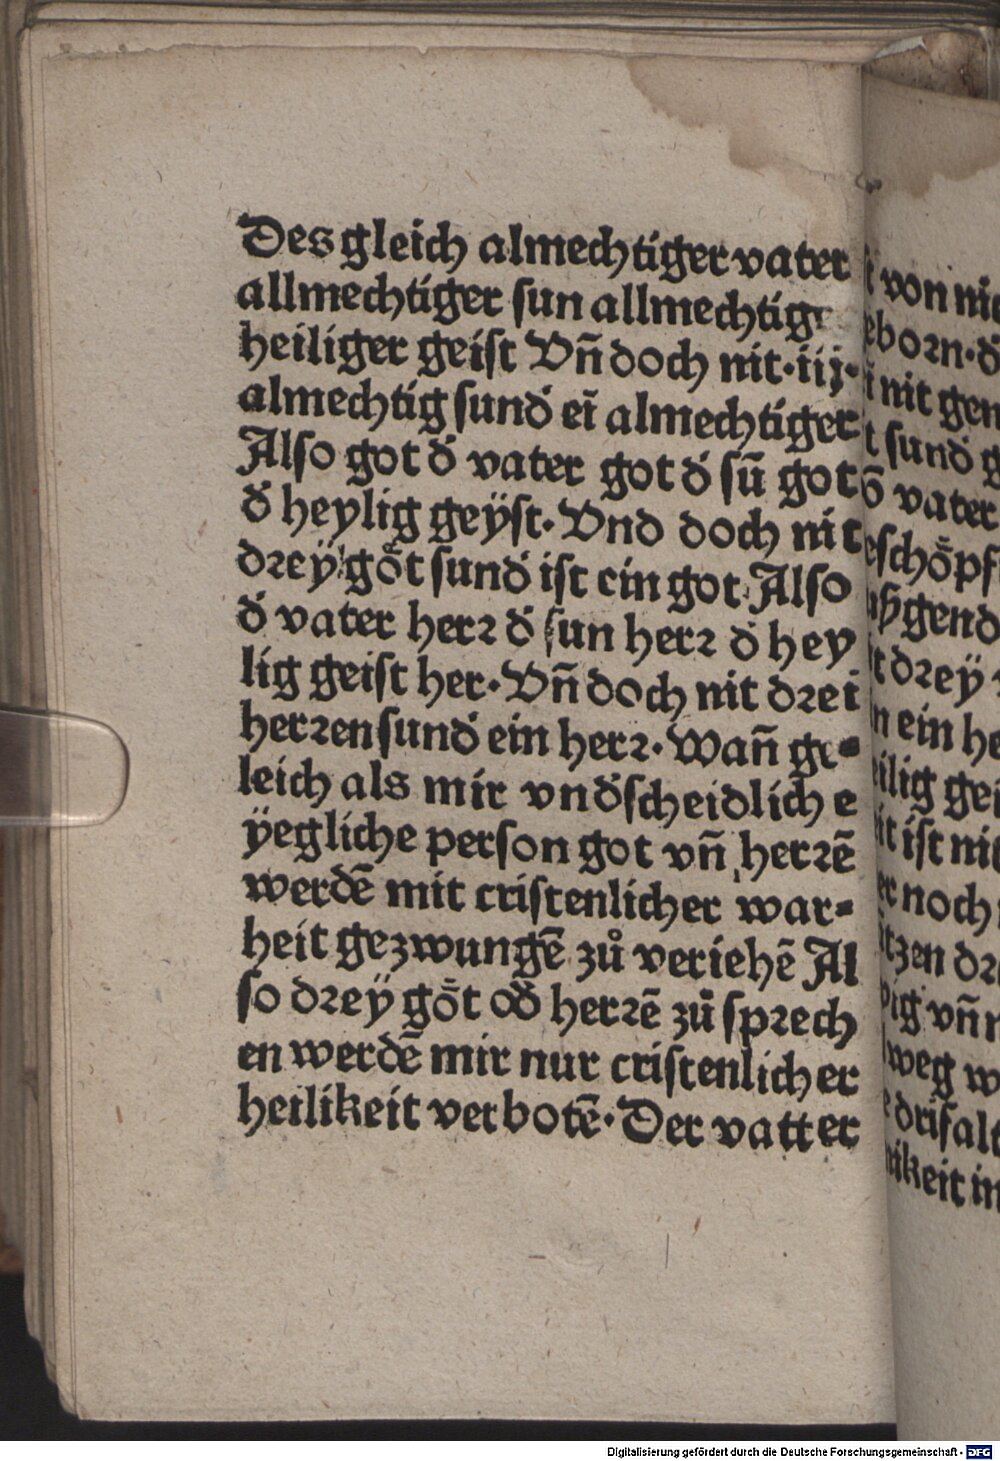 Des gleich almechtiger vater
allmechtiger ſun allmechtig
heiliger geiſt Vn̄ doch nit·iij·
almechtig ſund̓ eī almechtiger
Alſo got d̓ vater got d̓ ſū got
d̓ heylig geÿſt· Vnd doch nit
dreÿ goͤt ſund̓ iſt ein got· Alſo
d̓ vater herꝛ d̓ ſun herꝛ d̓ hey
lig geiſt her· Vn̄ doch nit drei
herꝛen ſund̓ ein herꝛ· Wan̄ ge⸗
leich als mir vnd̓ſcheidlich e
ÿegliche perſon got vn̄ herꝛē
werdē mit criſtenlicher war⸗
heit gezwungē zů veriehē Al
ſo dreÿ goͤt od̓ herꝛē zů ſprech
en werdē mir nur criſtenlicher
heilikeit verbotē· Der vatter
von nic
eborn· d̓
nit gen
ſund̓ g
vater
eſchoͤpf
gend
dreÿ
n ein he
eilig gei
it iſt nit
er noch
tzen dr
ig vn̄
weg w
drifalt
nikeit in
Digitalisierung gefördert durch die Deutsche Forschungsgemeinschaft - DFG